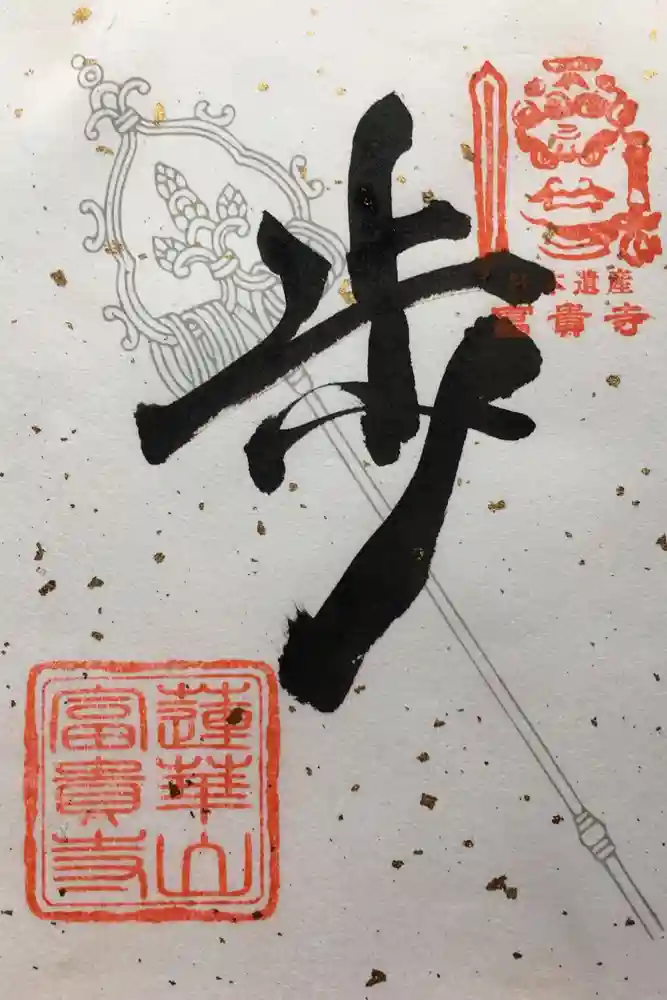 歩
日本遺産
富貴寺
蓮華山
富貴寺